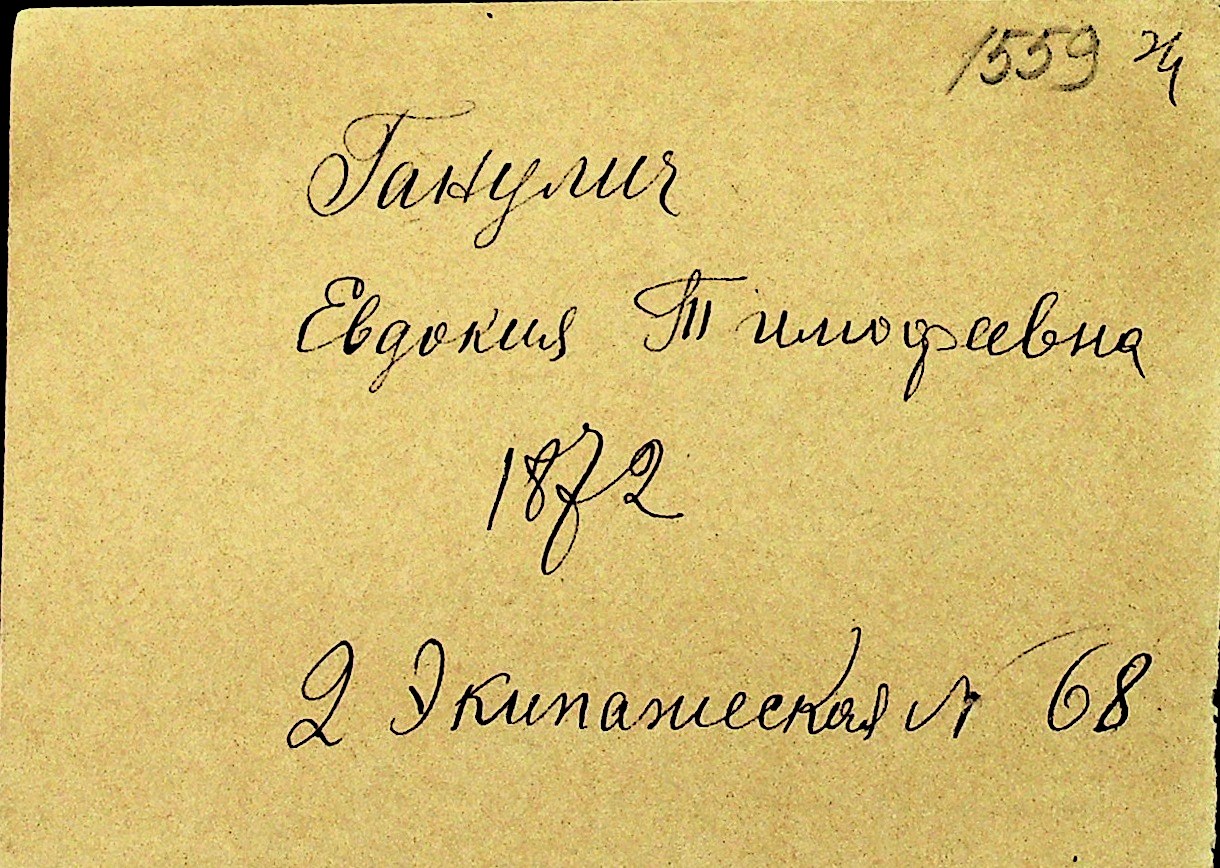 1559
Ганулич
Евдокия Тимофеевна
1872
2 Экипажеская № 68